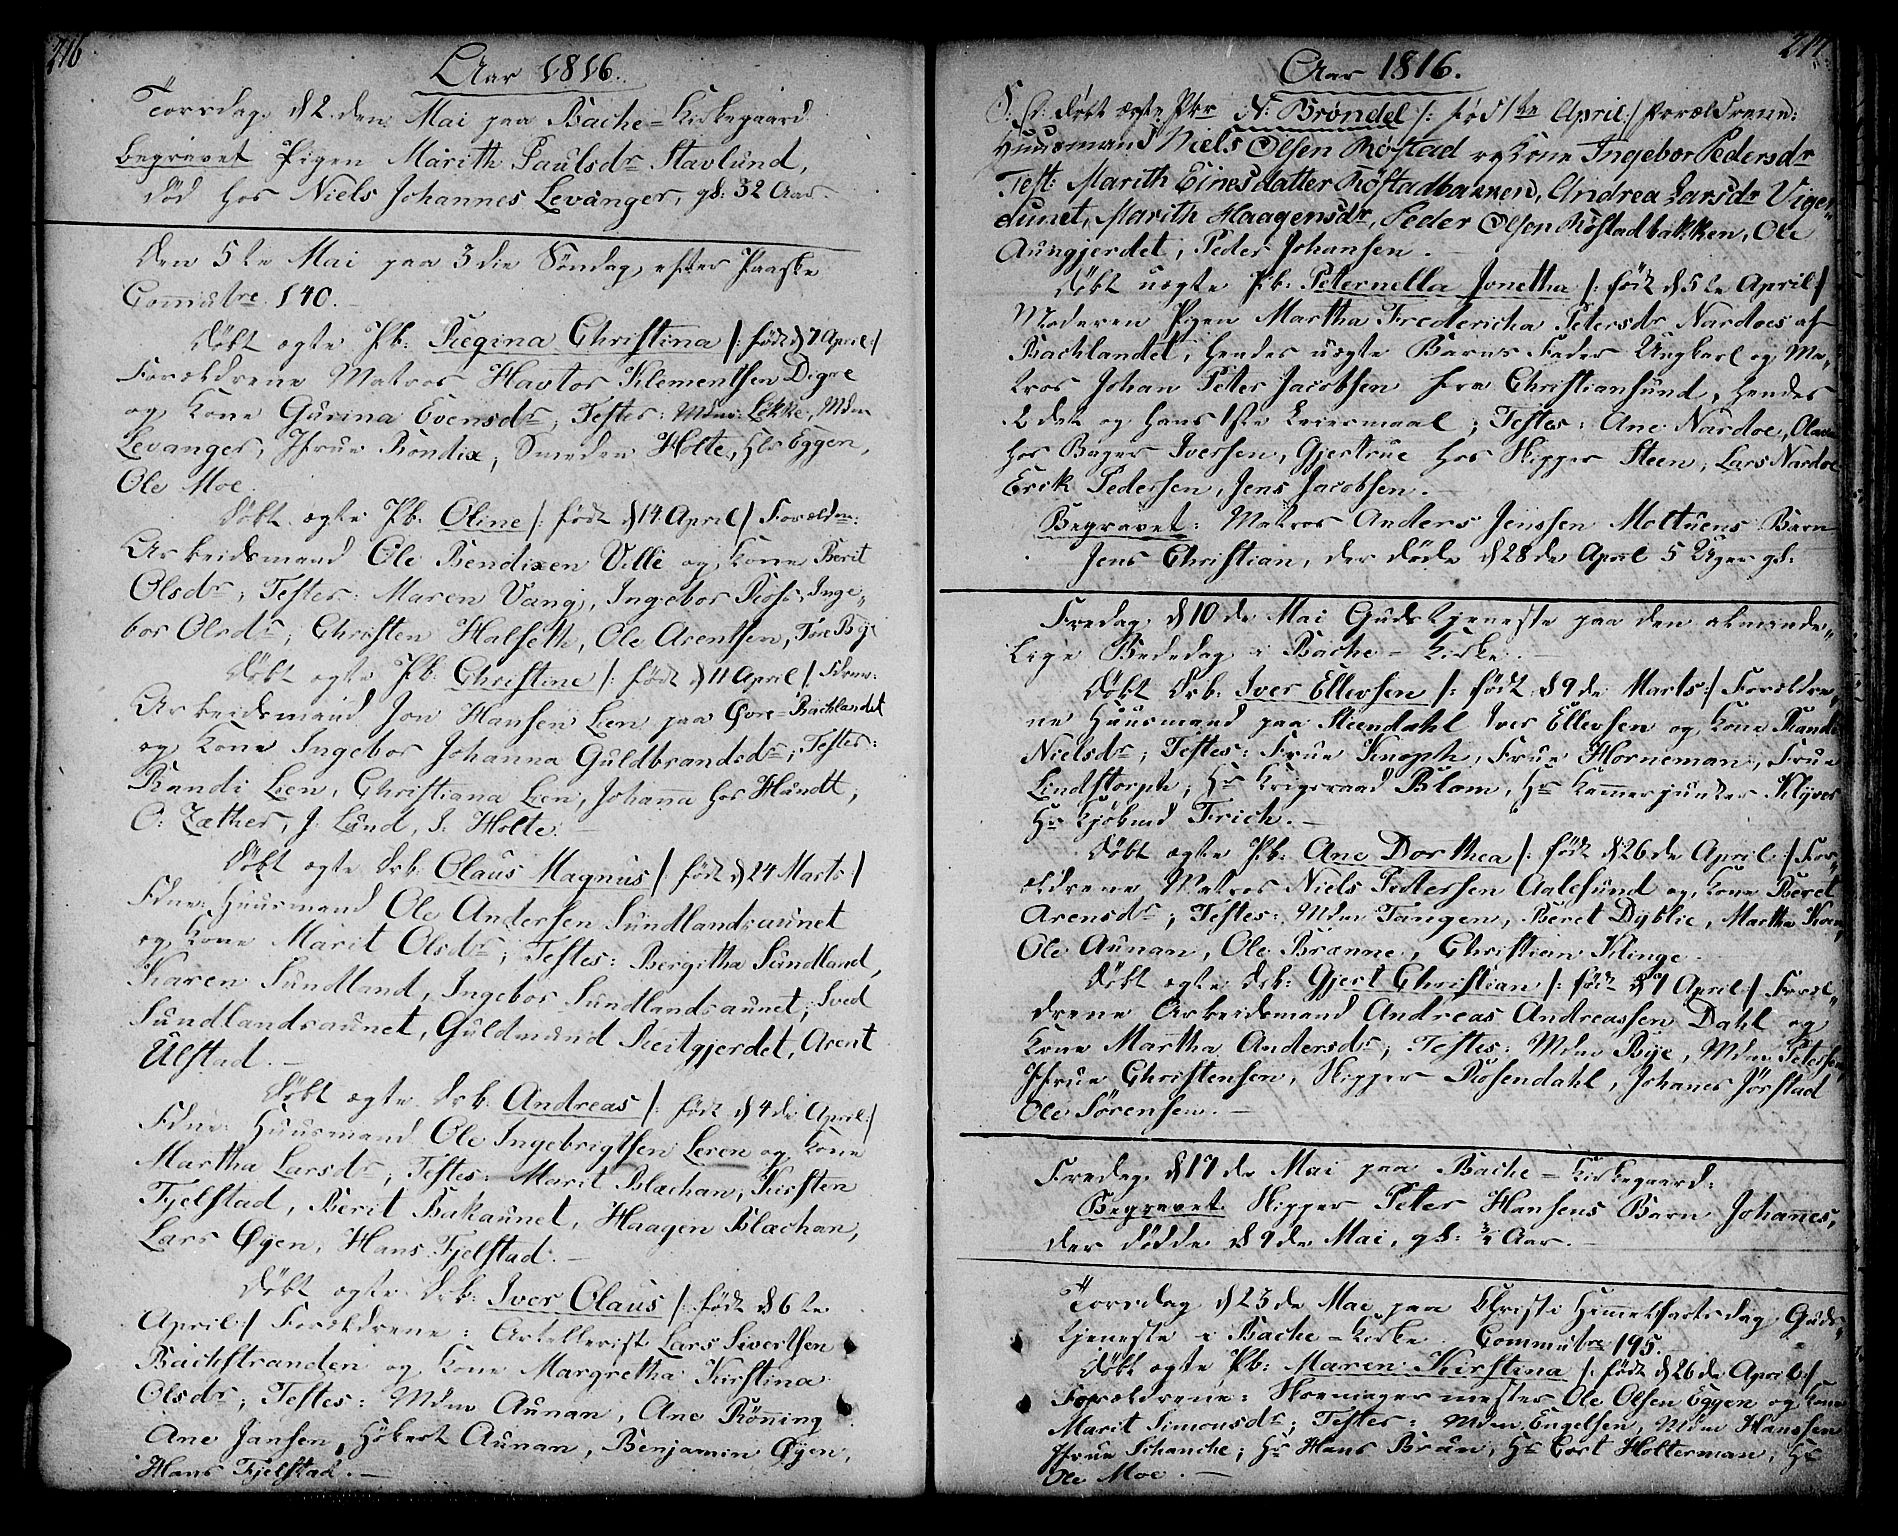 216
Aar 1816.
Torsdag d 2den Mai paa Bache-Kirkegaard
begravet Pigen Marith Paulsdr Stavlund,
død hos Niels Johannes Levanger, gl: 32 Aar.
Den 5te Mai paa 3die Søndag efter Paaske
Commtre 140.
Døbt ægte Pb: Regina Christina /: født d 7 April :/
Forældrene Matros Havtor Klementsen Digre
og Kone Gurina Evensdr, Testes: Mdm: Løkke, Mdm
Levanger, Jfrue Bondix, Smeden Holte, Hls Eggen,
Ole Moe.
Døbt ægte Pb. Oline /: født d 14 April / Forældrn:
Arbeidsmand Ole Bendixen Ville og Kone Berit
Olsdr, Testes: Maren Vang, Ingebor Rose, Inge„
bor Olsdr, Christen Halseth, Ole Arentsen, Tue Bye
Døbt ægte Pb: Christine /: født d 11 April / Fdrene:
Arbeidsmand Jon Hansen Lien paa Øvre-Bachlandet
og Kone Ingebor Johanna Guldbrandsdr; Testes:
Randi Lien, Christiana Lien, Johanna hos Hundt,
O: Zæther, J: Lund, I: Holte. —
Døbt ægte Drb: Olaus Magnus / født d 24 Marts /
Fdne: Huusmand Ole Andersen Sundlandsaunet
og Kone Marit Olsdr; Testes: Bergitha Sundland,
Karen Sundland, Ingebor Sundlandsaunet, Sved
Sundlandsaunet, Guldmund Reitgjerdet, Arent
Ulstad. —
Døbt ægte Drb. Andreas /: født d 4de April :/
Fdne: Huusmand Ole Ingebrigtsen Leren og Kone
Martha Larsdr; Testes: Marit Blachan, Kirsten
Fjelstad, Berit Bakaunet, Haagen Blachan,
Lars Øyen, Hans Fjelstad. —
Døbt ægte Drb: Iver Olaus /: født d 6te
April :/ Forældrene: Artellerist Lars Sivertsen
Bachstranden og Kone Margretha Kirstina
Olsdr; Testes: Mdm Aunan, Ane Rönning
Ane Jansen, Høkert Aunan, Benjamin Øyen,
Hans Fjelstad. —
217
Aar 1816.
døbt ægte Pbr N: Brøndel /: fød 1te April :/ Forældrene:
Huusmand Niels Olsen Röstad og Kone Ingebor Pedersdr
Test: Marith Einesdatter Röstadbakken, Andrea Larsdr Viger„
aunet, Marith Haagensdr, Peder Olsen Röstadbakken, Ole
Aungjerdet, Peder Johansen. —
Døbt uægte Pb: Peternella Jonetha /: født d 5te April /
Moderen Pigen Martha Fredericha Petersdr Nardoes af
Bachlandet, hendes uægte Barns Fader Ungkarl og Ma„
tros Johan Peter Jacobsen fra Christiansund, hendes
2det og hans 1ste Leiermaal; Testes: Ane Nardoe, Olava
hos Bager Iversen, Gjertrue hos Skipper Steen, Lars Nardoe
Erik Pedersen, Jens Jacobsen. —
Begravet: Matros Anders Jenssen Moltuens Barn
Jens Christian, der døde d 28de April 5 Uger gl:
Fredag d 10de Mai Gudstjeneste paa den alminde„
lige Bededag i Bache-Kirke. —
Døbt Drb: Iver Ellevsen /: født d 9de Marts :/ Forældre„
ne Huusmand paa Steendahl Iver Ellevsen og Kone Randi
Nielsdr; Testes: Frue Knoph, Frue Horneman, Frue
Lindstorph, Hr Krigsraad Blom, Hr Kammerjunker Klÿver
Hr Kjöbmd Frich. —
Døbt ægte Pb: Ane Dorthea /: født d 26de April / For„
ældrene Matros Niels Pettersen Aalesund og Kone Beret
Arensdr; Testes: Mdm Tangen, Beret Dyblie, Martha Kvam,
Ole Aunan, Ole Brønne, Christian Klinge. —
Døbt ægte Drb: Gjert Christian /: født d 7 April / Foræl„
drene Arbeidsmand Andreas Andreassen Dahl og
Kone Martha Andersdr; Testes: Mdm Bye, Mdm Petersen,
Jfrue Christensen, Skipper Rosendahl, Johanes Jørstad
Ole Sörensen. —
Fredag d 17de Mai paa Bache-Kirkegaard:
Begravet Skipper Peter Hansens Barn Johannes,
der dödde d 9de Mai, gl: ¾ Aar. —
Torsdag d 23de Mai paa Christi Himmelfartsdag Guds„
tjeneste i Bache-Kirke. Commtre 195.
Døbt ægte Pb: Maren Kirstina /: født d 26de April :/
Forældrene: Skoemagermester Ole Olsen Eggen og Kone
Marit Simonsdr; Testes: Mdm Engelsen, Mdm Hanssen
Jfrue Schanche, Hr Hans Brun, Hr Cort Holterman, Hr
Ole Moe. —